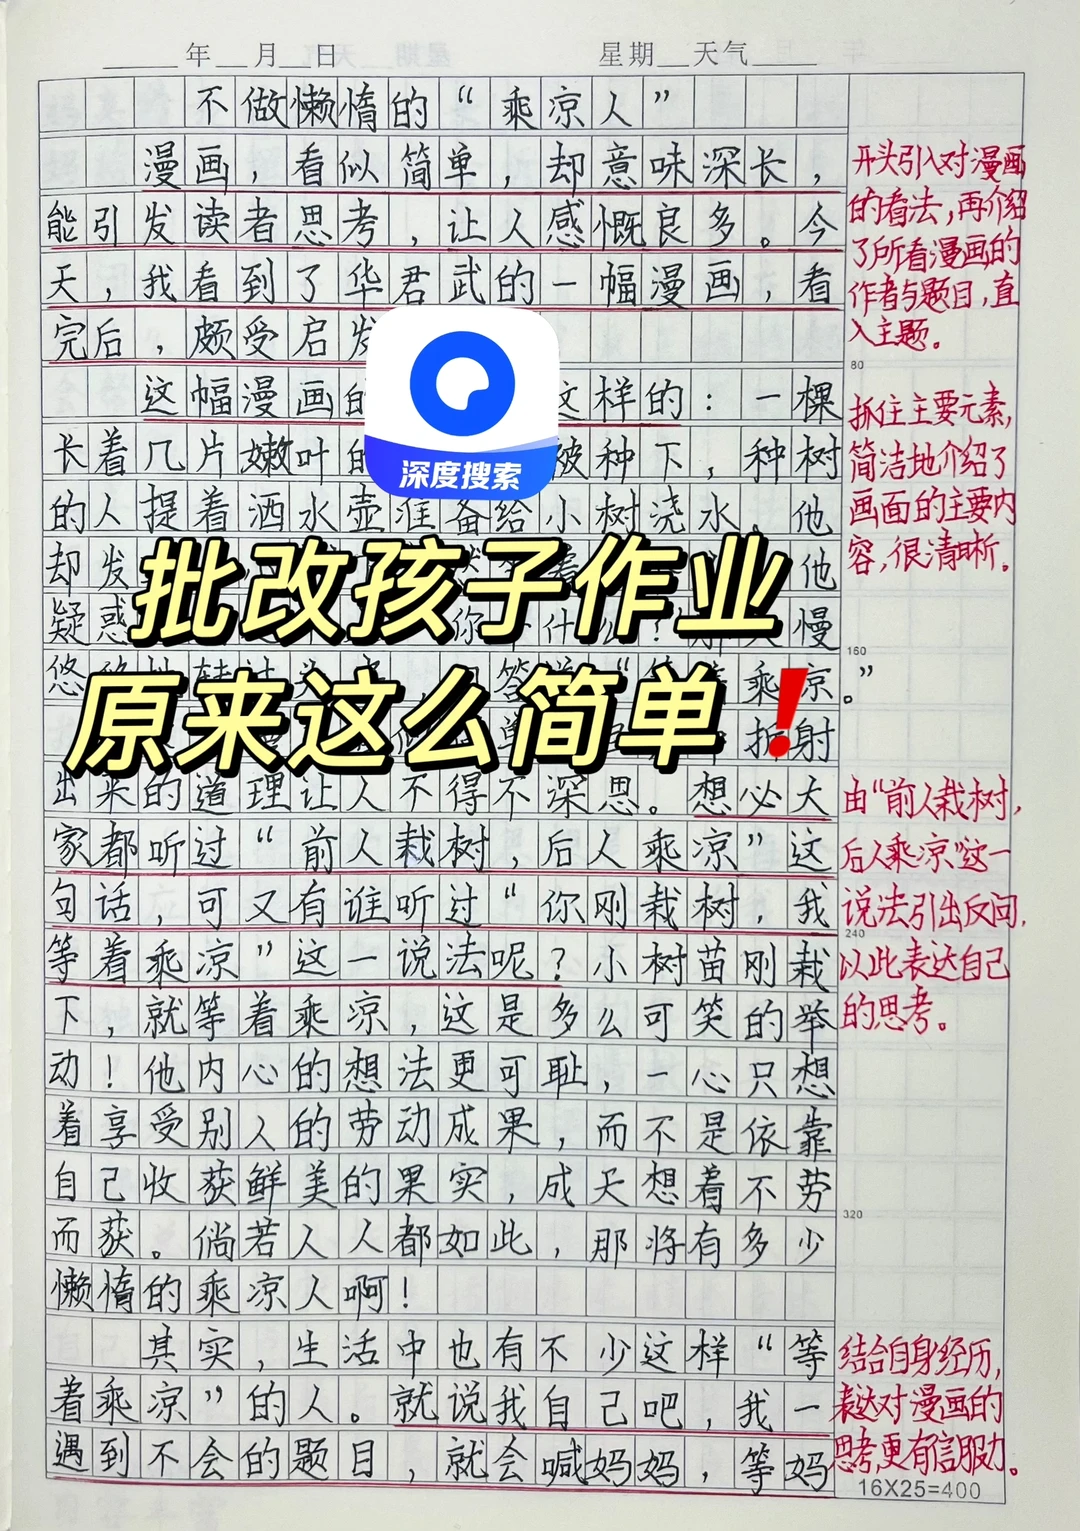 年 月 日 星期 天气
不做懒惰的“乘凉人”
漫画，看似简单，却意味深长，
能引发读者思考，让人感慨良多。今
天，我看到了华君武的一幅漫画，看
完后，颇受启发
这幅漫画的 这样的：一棵
长着几片嫩叶的 被种下，种树
的人提着洒水壶准备给小树浇水。他
却发 他
疑惑 你 什么？ 慢
悠 答 乘凉。”
折射
出来的道理让人不得不深思。想必大
家都听过“前人栽树，后人乘凉”这
句话，可又有谁听过“你刚栽树，我
等着乘凉”这一说法呢？小树苗刚栽
下，就等着乘凉，这是多么可笑的举
动！他内心的想法更可耻，一心只想
着享受别人的劳动成果，而不是依靠
自己收获鲜美的果实，成天想着不劳
而获。倘若人人都如此，那将有多少
懒惰的乘凉人啊！
其实，生活中也有不少这样“等
着乘凉”的人。就说我自己吧，我一
遇到不会的题目，就会喊妈妈，等妈
开头引入对漫画
的看法，再介绍
了所看漫画的
作者与题目，直
入主题。
80
抓住主要元素，
简洁地介绍了
画面的主要内
容，很清晰。
160
由“前人栽树，
后人乘凉”这一
说法引出反问，
240
以此表达自己
的思考。
320
结合自身经历，
表达对漫画的
思考，更有信服力。
16X25=400
深度搜索
批改孩子作业
原来这么简单！